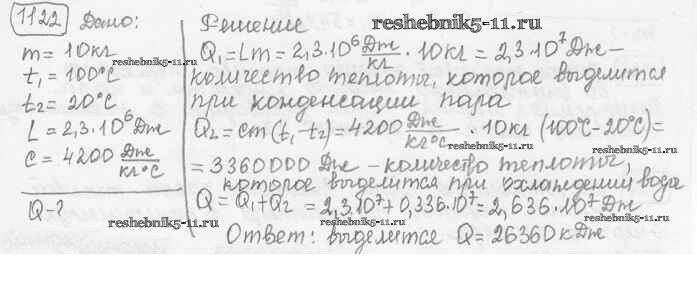 1122 Дано:
m = 10 кг
t₁ = 100°C
t₂ = 20°C
L = 2,3·10⁶ Дж
c = 4200 Дж/кг°C
Q - ?
Решение
Q₁ = Lm = 2,3·10⁶ Дж/кг · 10 кг = 2,3·10⁷ Дж –
количество теплоты, которое выделится
при конденсации пара
Q₂ = cm(t₁-t₂) = 4200 Дж/кг°C · 10 кг (100°C - 20°C) =
= 3360000 Дж – количество теплоты,
которое выделится при охлаждении вода
Q = Q₁ + Q₂ = 2,3·10⁷ + 0,336·10⁷ = 2,636·10⁷ Дж
Ответ: выделится Q = 26360 кДж
reshebnik5-11.ru
reshebnik5-11.ru
reshebnik5-11.ru
reshebnik5-11.ru
reshebnik5-11.ru
reshebnik5-11.ru
reshebnik5-11.ru
reshebnik5-11.ru